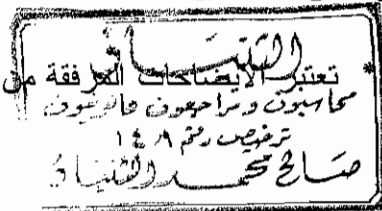 الثنيان
تعتبر الايضاحات المرفقة من
محاسبون ومراجعون قانونيون
ترخيص رقم ١٤٨
صالح محمد الثنيان